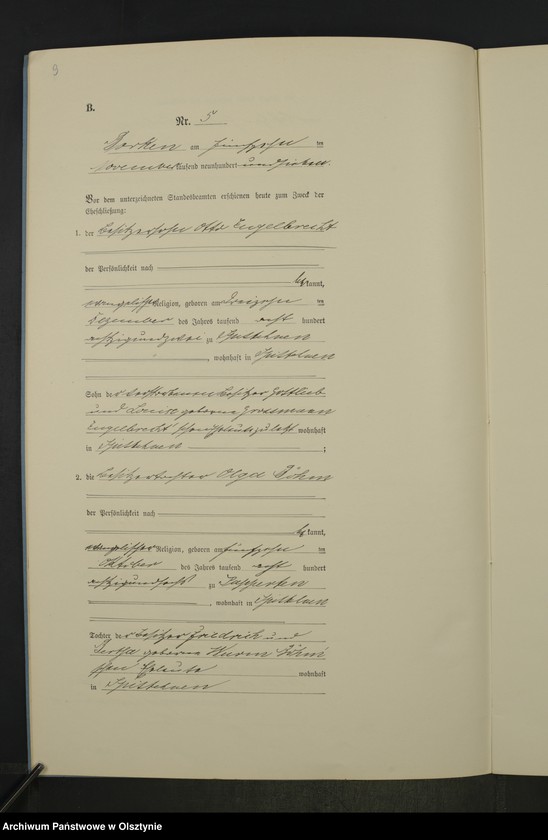 9
B.
Nr. 5
Borken am fünfzehn ten
November tausend neunhundert und sieben.
Vor dem unterzeichneten Standesbeamten erschienen heute zum Zweck der
Eheschließung:
1. der Besitzersohn Otto Engelbrecht
der Persönlichkeit nach
be kannt,
evangelischer Religion, geboren am dreizehn ten
Dezember des Jahres tausend acht hundert
achtzig und zu
, wohnhaft in
Sohn des verstorbenen Besitzer Gottlieb
und Louise geborene Grossmann
Engelbrecht'schen Eheleute zuletzt wohnhaft
in ;
2. die Besitzertochter Olga Böhm
der Persönlichkeit nach
be kannt,
evangelischer Religion, geboren am fünfzehn ten
Oktober des Jahres tausend acht hundert
achtzig und sechs zu
, wohnhaft in
Tochter der Besitzer Friedrich und
Bertha geborene Wurm Böhm'
schen Eheleute wohnhaft
in
Archiwum Państwowe w Olsztynie